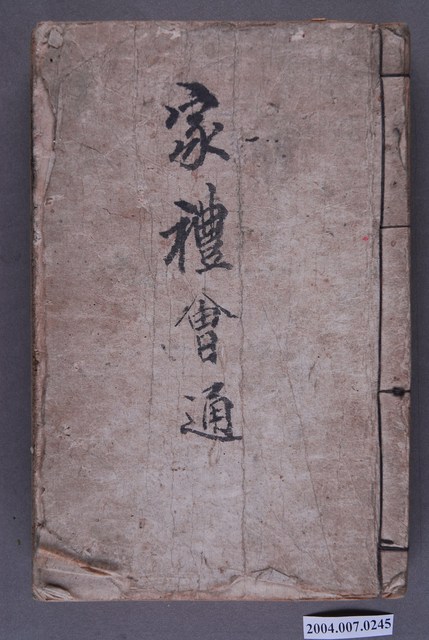 家禮會通
2004.007.0245